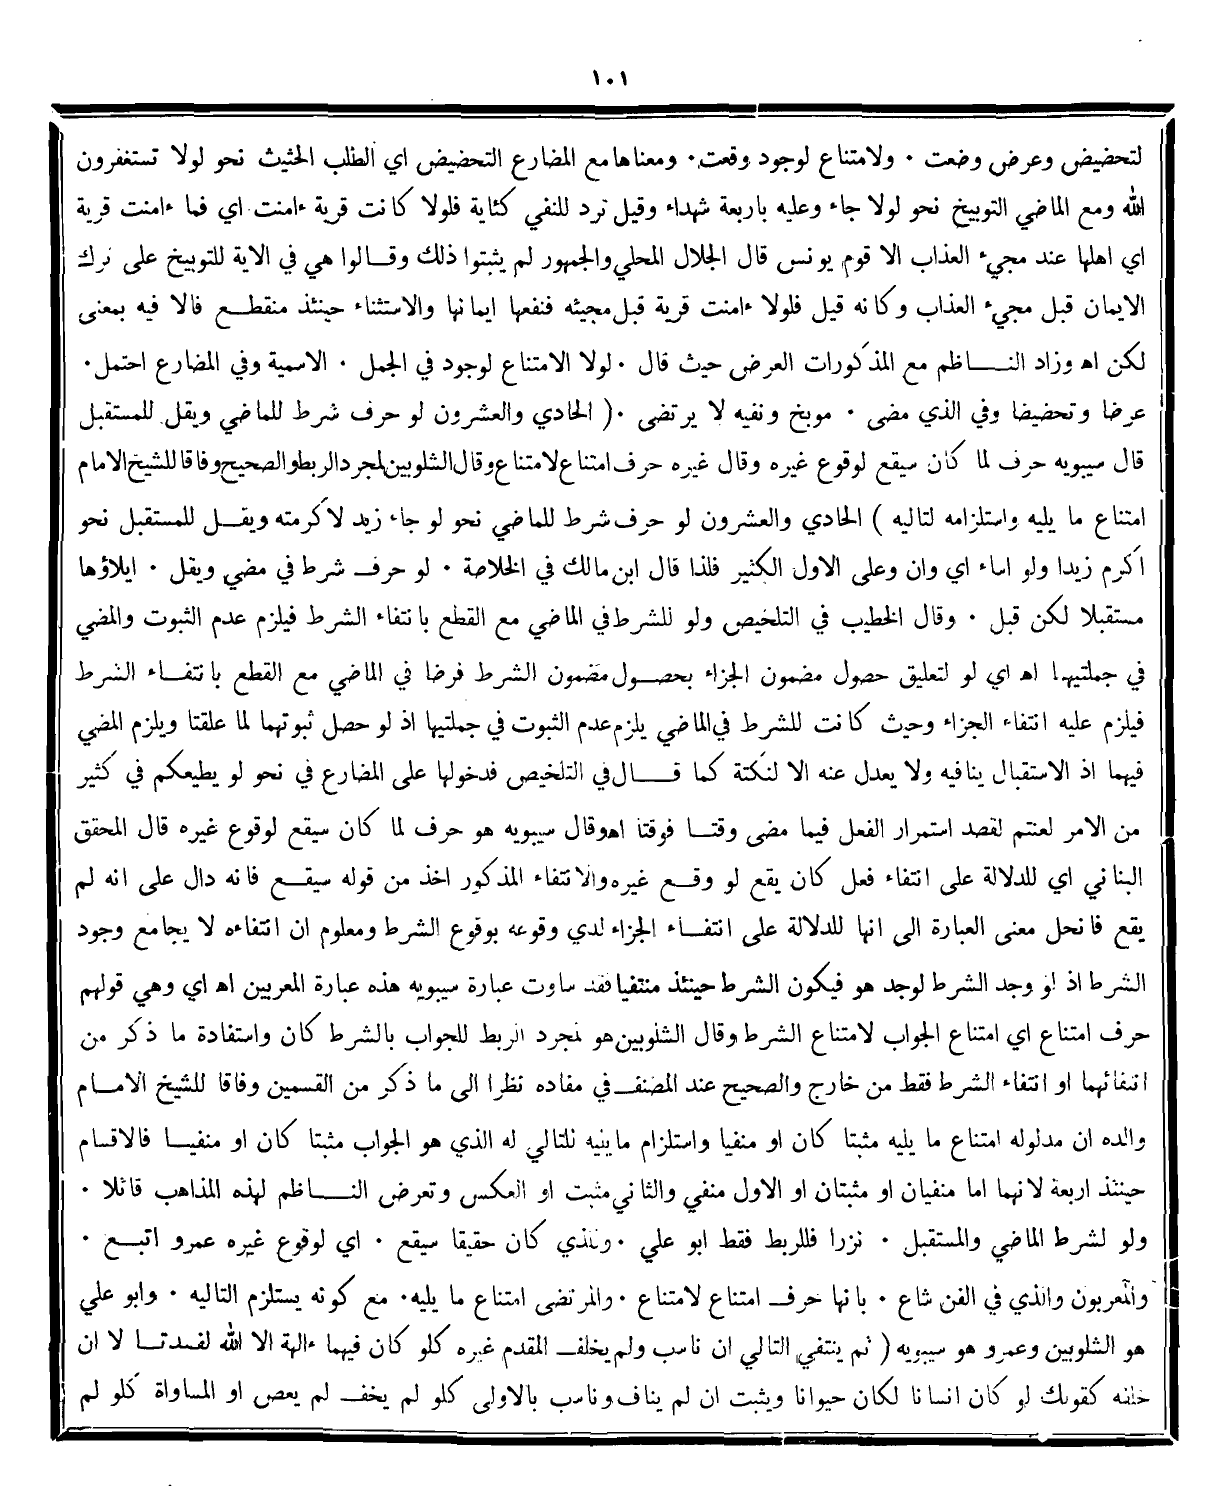 ١٠١
لتحضيض وعرض وضعت ٠ ولامتناع لوجود وقعت٠ ومعناها مع المضارع التحضيض اي الطلب الحثيث نحو لولا تستغفرون
الله ومع الماضي التوبيخ نحو لولا جاءو عليه باربعة شهداء وقيل ترد للنفي كثاية فلولا كانت قرية ءامنت اي فما ءامنت قرية
اي اهلها عند مجيء العذاب الا قوم يونس قال الجلال المحلي والجمهور لم يثبتوا ذلك وقالوا هي في الاية للتوبيخ على ترك
الايمان قبل مجيء العذاب وكانه قيل فلولا ءامنت قرية قبل مجيئه فنفعها ايمانها والاستثناء حينئذ منقطع فالا فيه بمعنى
لكن اه وزاد الناظم مع المذكورات العرض حيث قال ٠ لولا الامتناع لوجود في الجمل ٠ الاسمية وفي المضارع احتمل٠
عرضا وتحضيضا وفي الذي مضى ٠ موبخ ونفيه لا يرتضى ٠( الحادي والعشرون لو حرف شرط للماضي ويقل للمستقبل
قال سيبويه حرف لما كان سيقع لوقوع غيره وقال غيره حرف امتناع لامتناع وقال الشلوبين لمجرد الربط والصحيح وفاقا للشيخ الامام
امتناع ما يليه واستلزامه لتاليه ) الحادي والعشرون لو حرف شرط للماضي نحو لو جاء زيد لاكرمته ويقل للمستقبل نحو
أكرم زيدا ولو اساء اي وان وعلى الاول الكثير فلذا قال ابن مالك في الخلاصة ٠ لو حرف شرط في مضي ويقل ٠ ايلاؤها
مستقبلا لكن قبل ٠ وقال الخطيب في التلخيص ولو للشرط في الماضي مع القطع بانتفاء الشرط فيلزم عدم الثبوت والمضي
في جملتيها اه اي لو لتعليق حصول مضمون الجزاء بحصول مضمون الشرط فرضا في الماضي مع القطع بانتفاء الشرط
فيلزم عليه انتفاء الجزاء وحيث كانت للشرط في الماضي يلزم عدم الثبوت في جملتيها اذ لو حصل ثبوتهما لما علقتا ويلزم المضي
فيهما اذ الاستقبال ينافيه ولا يعدل عنه الا لنكتة كما قال في التلخيص فدخولها على المضارع في نحو لو يطيعكم في كثير
من الامر لعنتم لقصد استمرار الفعل فيما مضى وقتا فوقتا اه وقال سيبويه هو حرف لما كان سيقع لوقوع غيره قال المحقق
البناني اي للدلالة على انتفاء فعل كان يقع لو وقع غيره والانتفاء المذكور اخذ من قوله سيقع فانه دال على انه لم
يقع فانحل معنى العبارة الى انها للدلالة على انتفاء الجزاء لدي وقوعه بوقوع الشرط ومعلوم ان انتفاءه لا يجامع وجود
الشرط اذ لو وجد الشرط لوجد هو فيكون الشرط حينئذ منتفيا فقد ساوت عبارة سيبويه هذه عبارة المعربين اه اي وهي قولهم
حرف امتناع اي امتناع الجواب لامتناع الشرط وقال الشلوبين هو لمجرد الربط للجواب بالشرط كان واستفادة ما ذكر من
انتفائهما او انتفاء الشرط فقط من خارج والصحيح عند المصنف في مفاده نظرا الى ما ذكر من القسمين وفاقا للشيخ الامام
والده ان مدلوله امتناع ما يليه مثبتا كان او منفيا واستلزام ما يليه للتالي له الذي هو الجواب مثبتا كان او منفيا فالاقسام
حينئذ اربعة لانهما اما منفيان او مثبتان او الاول منفي والثاني مثبت او العكس وتعرض الناظم لهذه المذاهب قائلا ٠
ولو لشرط الماضي والمستقبل ٠ نزرا فللربط فقط ابو علي ٠ وللذي كان حقيقا سيقع ٠ اي لوقوع غيره عمرو اتبع ٠
والمعربون والذي في الفن شاع ٠ بانها حرف امتناع لامتناع ٠ والمرتضى امتناع ما يليه٠ مع كونه يستلزم التاليه ٠ وابو علي
هو الشلوبين وعمرو هو سيبويه ( ثم ينتفي التالي ان ناسب ولم يخلف المقدم غيره كلو كان فيهما ءالهة الا الله لفسدتا لا ان
خلفه كقولك لو كان انسانا لكان حيوانا ويثبت ان لم يناف وناسب بالاولى كلو لم يخف لم يعص او المساواة كلو لم